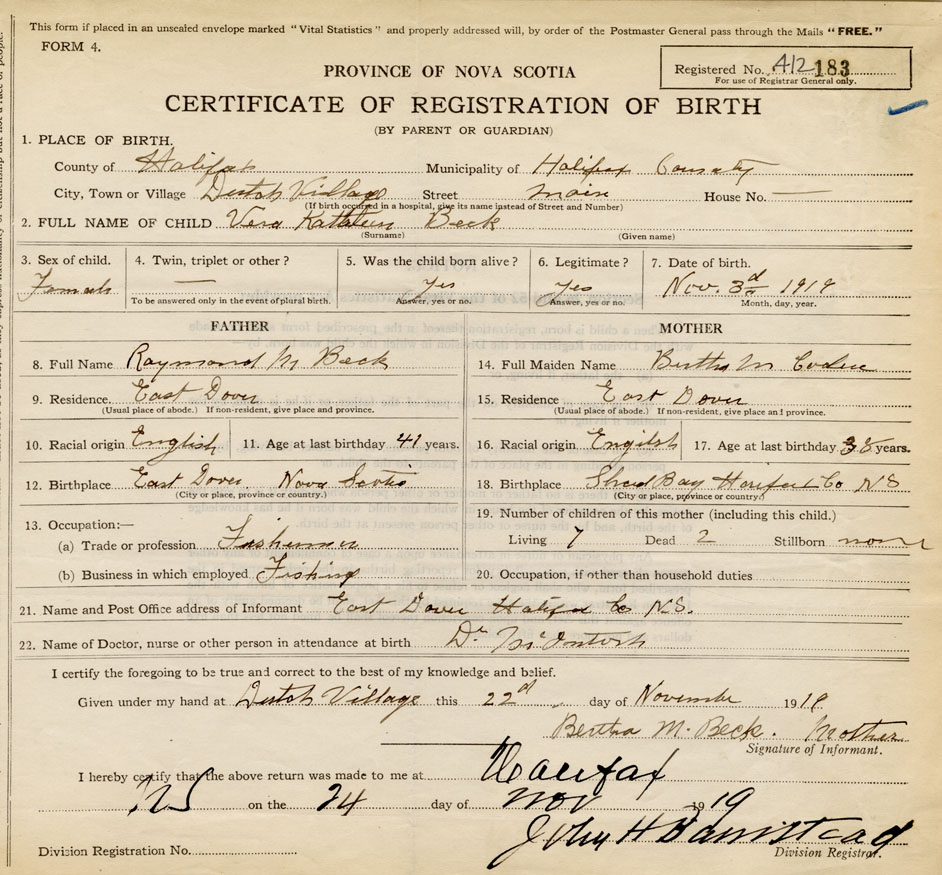 This form if placed in an unsealed envelope marked "Vital Statistics" and properly addressed will, by order of the Postmaster General pass through the Mails "FREE."
FORM 4.
Registered No. 412 183
For use of Registrar General only.
PROVINCE OF NOVA SCOTIA
CERTIFICATE OF REGISTRATION OF BIRTH
(BY PARENT OR GUARDIAN)
1. PLACE OF BIRTH.
County of Halifax Municipality of Halifax County
City, Town or Village Dutch Village Street Main House No. —
(If birth occurred in a hospital, give its name instead of Street and Number)
2. FULL NAME OF CHILD Vera Kathleen Beck
(Surname) (Given name)
3. Sex of child. 4. Twin, triplet or other? 5. Was the child born alive? 6. Legitimate? 7. Date of birth.
Female — Yes Yes Nov. 3rd 1919
To be answered only in the event of plural birth. Answer, yes or no. Answer, yes or no. Month, day, year.
FATHER MOTHER
8. Full Name Raymond M Beck 14. Full Maiden Name Bertha M
9. Residence. East Dover 15. Residence East Dover
(Usual place of abode.) If non-resident, give place and province. (Usual place of abode.) If non-resident, give place and province.
10. Racial origin English 11. Age at last birthday 41 years. 16. Racial origin English 17. Age at last birthday 38 years.
12. Birthplace East Dover Nova Scotia 18. Birthplace Shad Bay Halifax Co NS
(City or place, province or country.) (City or place, province or country)
13. Occupation:— 19. Number of children of this mother (including this child.)
(a) Trade or profession Fisherman Living 7 Dead 2 Stillborn none
(b) Business in which employed Fishing 20. Occupation, if other than household duties
21. Name and Post Office address of Informant East Dover Halifax Co N.S.
22. Name of Doctor, nurse or other person in attendance at birth Dr McIntosh
I certify the foregoing to be true and correct to the best of my knowledge and belief.
Given under my hand at Dutch Village this 22nd day of November 1919
Bertha M. Beck. Mother
Signature of Informant.
I hereby certify that the above return was made to me at Halifax
NS on the 24 day of Nov 1919
John H Barnstead
Division Registration No. Division Registrar.